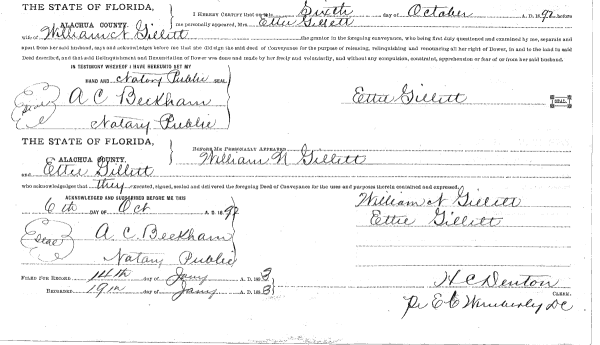 THE STATE OF FLORIDA,
ALACHUA COUNTY.
I HEREBY CERTIFY that on this Sixth day of October A. D. 1892 before
me personally appeared, Mrs. Ettie Gillett
wife of William N Gillett the grantor in the foregoing conveyance, who being first duly questioned and examined by me, separate and
apart from her said husband, says and acknowledges before me that she did sign the said deed of Conveyance for the purpose of releasing, relinquishing and renouncing all her right of Dower, in and to the land in said
Deed described, and that said Relinquishment and Renunciation of Dower was done and made by her freely and voluntarily, and without any compulsion, constraint, apprehension or fear of or from her said husband.
IN TESTIMONY WHEREOF I HAVE HEREUNTO SET MY
HAND AND Notary Public SEAL
Seal A C Beckham
Notary Public
Ettie Gillett SEAL
THE STATE OF FLORIDA,
ALACHUA COUNTY.
BEFORE ME PERSONALLY APPEARED William N Gillett
and Ettie Gillett
who acknowledges that they executed, signed, sealed and delivered the foregoing Deed of Conveyance for the uses and purposes therein contained and expressed.
ACKNOWLEDGED AND SUBSCRIBED BEFORE ME THIS
6th DAY OF Oct A. D. 1892
Seal A. C. Beckham
Notary Public
William N Gillett
Ettie Gillett
FILED FOR RECORD 14th day of Jany A. D. 1893
RECORDED 19th day of Jany A. D. 1893
H C Denton
CLERK.
Pr E C Wimberly DC